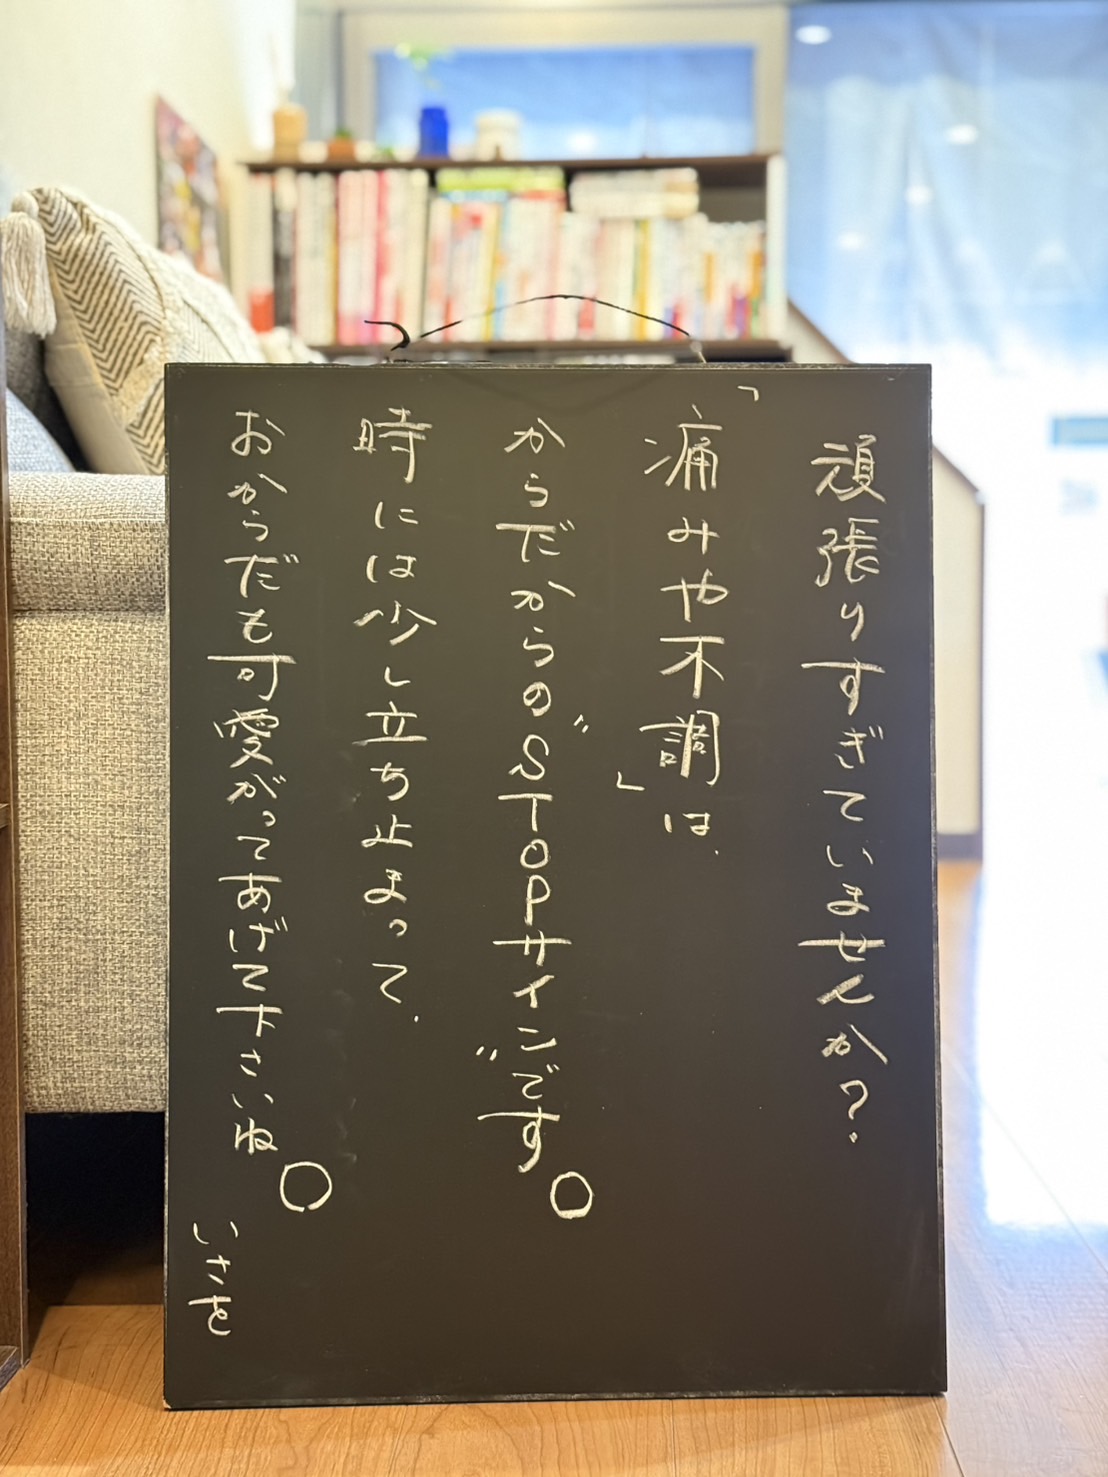 頑張りすぎていませんか?
「痛みや不調」は、
からだからの"STOPサインです"。
時には少し立ち止まって、
おからだも可愛がってあげて下さいね。
いさを